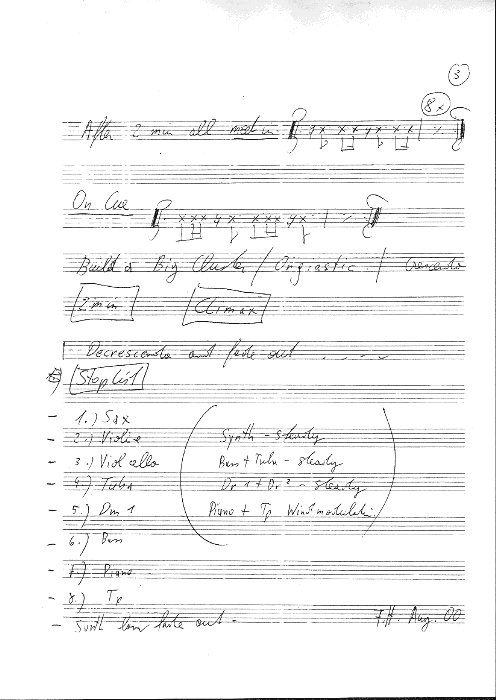 3
8x
After 2 min all meet in
On Cue
Build a Big Cluster / Orgiastic / Crescendo
2 min Climax
Decrescendo and fade out
Stop List
- 1.) Sax
- 2.) Violine Synth - steady
- 3.) Violcello Bass + Tuba - steady
- 4.) Tuba Dr 1 + Dr 2 - steady
- 5.) Dm 1 Piano + Tp Wind modulation
- 6.) Bass
- 7.) Piano
- 8.) Tp
- Synth fade out -
Aug. 00